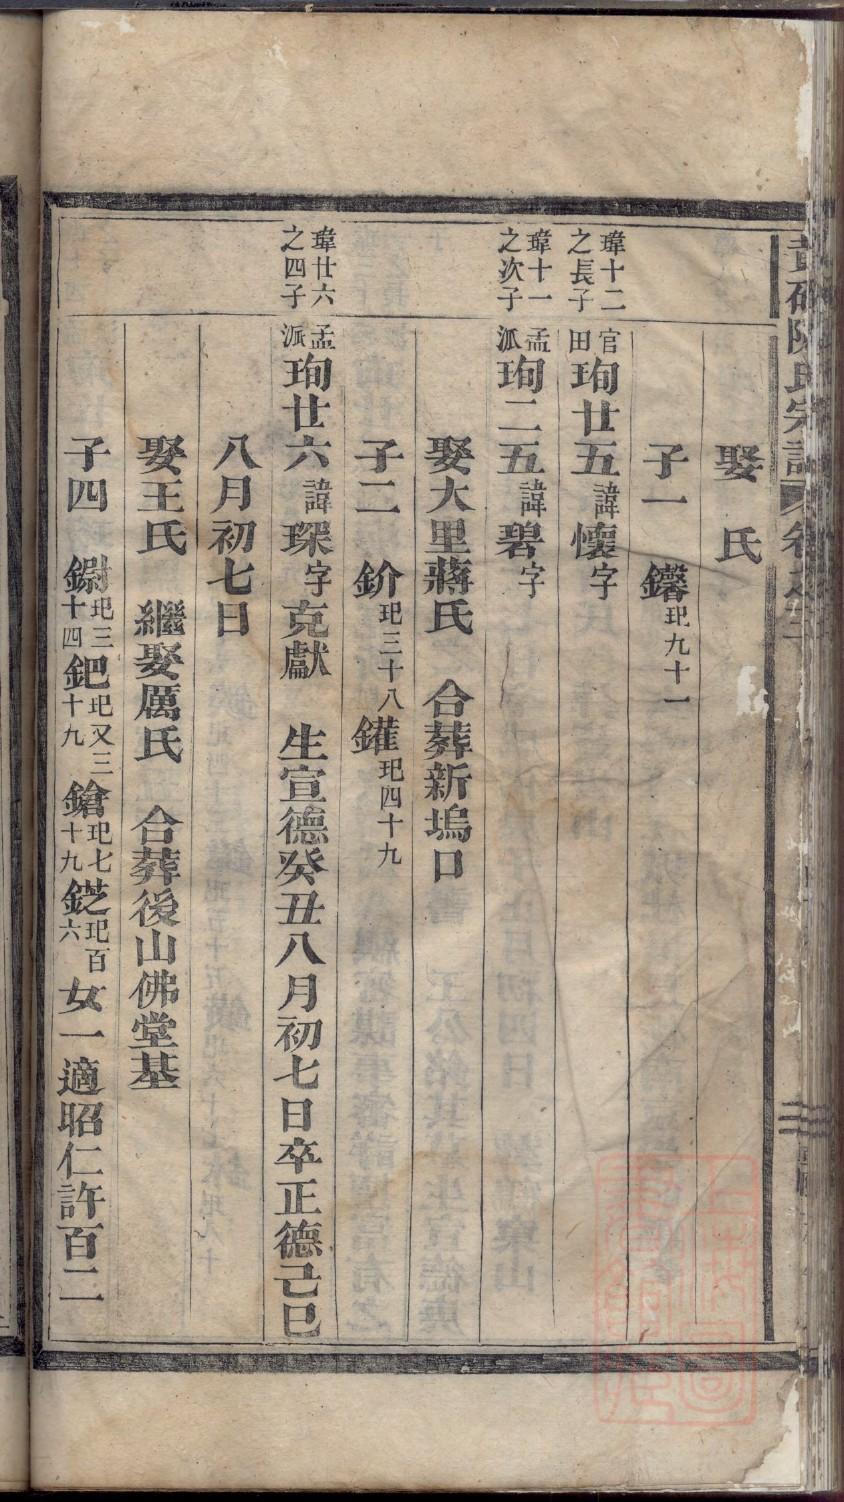 娶 氏
子一 鑻玘九十一
瑋十二之長子 官田珣廿五諱懷字
瑋十一之次子 孟派珣二五諱碧字
娶大里蔣氏 合葬新塢口
子二 鈫玘三十八 鑵玘四十九
瑋廿六之四子 孟派珣廿六諱琛字克獻 生宣德癸丑八月初七日卒正德己巳
八月初七日
娶王氏 繼娶厲氏 合葬後山佛堂基
子四 玘三十四 鈀玘又三十九 鎗玘七十九 玘百六 女一適昭仁許百二